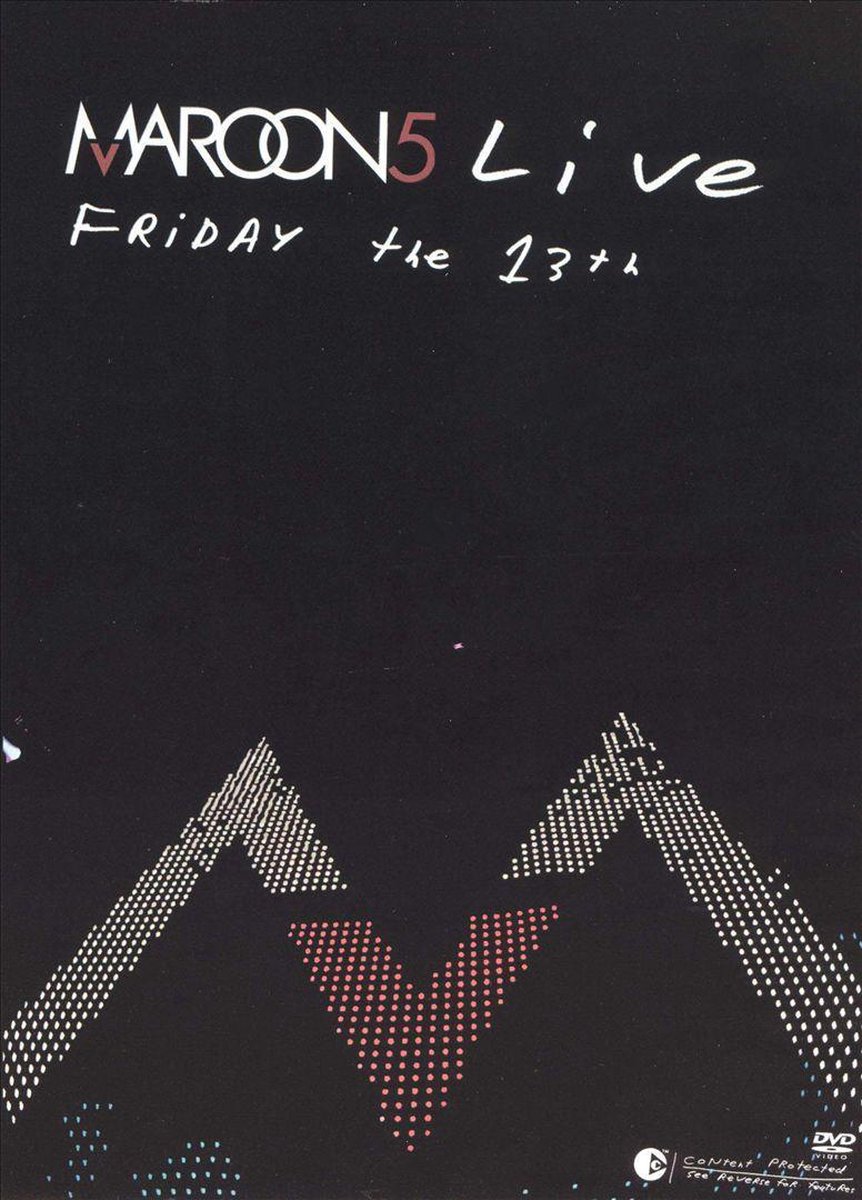 MAROON5 Live
FRiDAY the 13th
DVD
VIDEO
CoNtent PRotected
See ReveRse foR featuRes